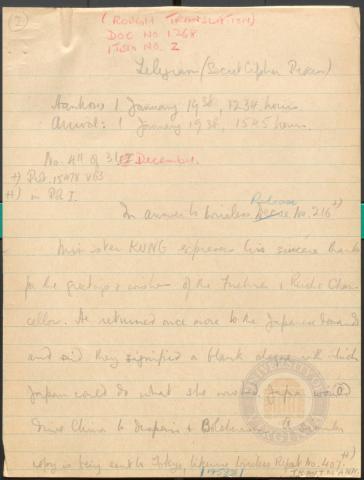 (2)
(ROUGH TRANSLATION)
DOC NO 1268
ITEM NO. 2
Telegram (Secret Cipher Process)
Hankow 1 January 1938, 1234 hours.
Arrival: 1 January 1938, 1545 hours.
No. 411 of 31st December.
+) Pol. 15478 VG3
++) in Pol I.
Release
In answer to Wireless No. 216 +)
Minister KUNG expresses his sincere thanks
for the greetings & wishes of the Fuehrer & Reich Chan-
cellor. He returned once more to the Japanese demands
and said they signified a blank cheque with which
Japan could do what she wished. Japan would
drive China to despair & Bolshevism. A
copy is being sent to Tokyo likewise Wireless Report No. 407. ++)
TRAUTMANN.